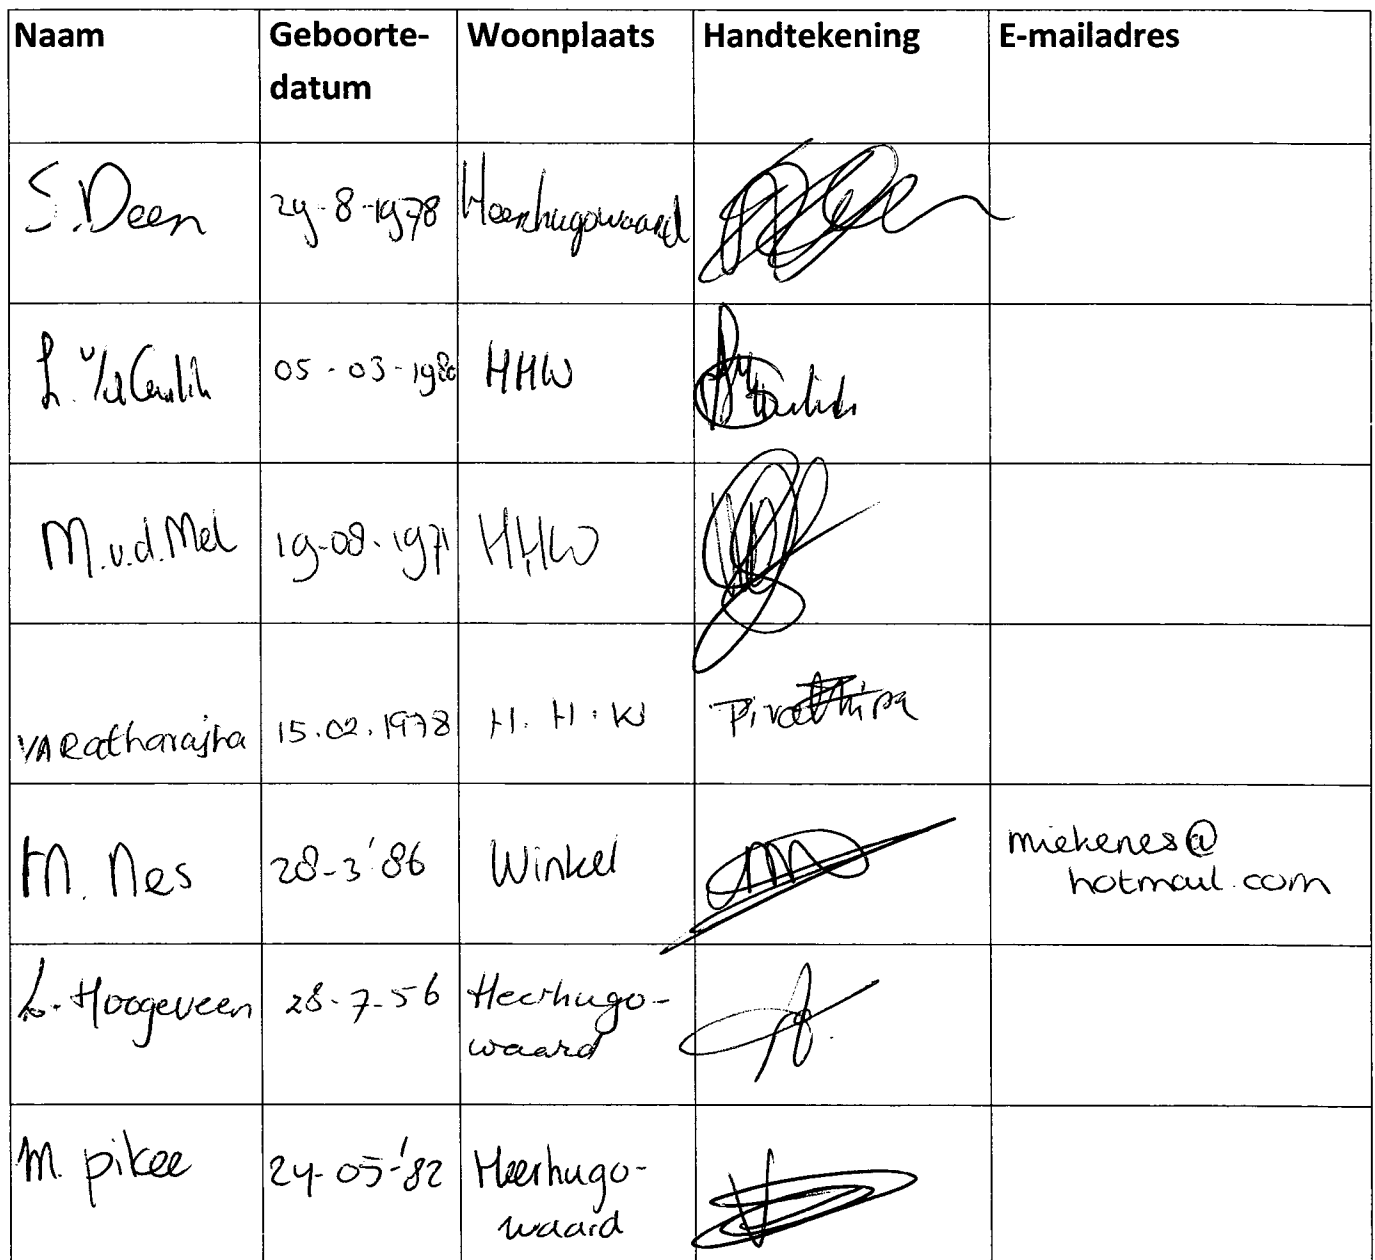 Naam Geboorte- Woonplaats Handtekening E-mailadres
datum
S. Deen 24-8-1978 Heerhugowaard
L. v/d 05-03-1980 HHW
M.v.d.Mel 19-08-1971 HHW
VARatharajha 15.02.1978 H.H.W
M. Nes 28-3'86 Winkel miekenes@
hotmail.com
L. Hoogeveen 28-7-56 Heerhugo-
waard
M. pikee 24-05-'82 Heerhugo-
waard